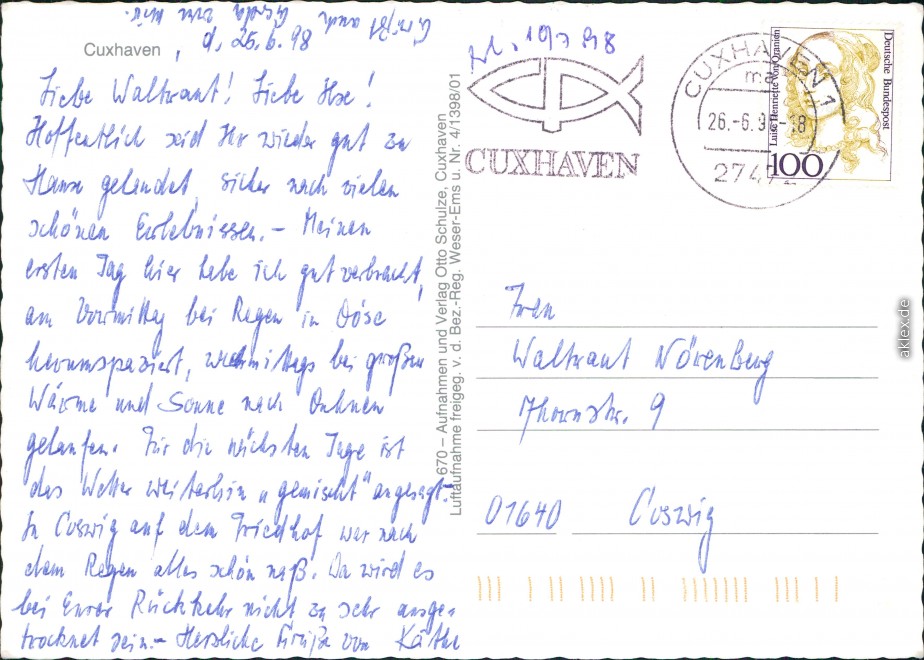 Cuxhaven, d. 25.6.98
Liebe Waltraut! Liebe Ilse!
Hoffentlich seid Ihr wieder gut zu
Hause gelandet, sicher nach vielen
schönen Erlebnissen. – Meinen
ersten Tag hier habe ich gut verbracht,
am Vormittag bei Regen in Döse
herumspaziert, nachmittags bei großer
Wärme und Sonne nach Duhnen
gelaufen. Für die nächsten Tage ist
das Wetter weiterhin „gemischt" angesagt.
In Coswig auf dem Friedhof war nach
dem Regen alles schön naß. Da wird es
bei Eurer Rückkehr nicht zu sehr ausge-
trocknet sein. – Herzliche Grüße von Käthe
Grüßt auch Gerda von mir.
670 – Aufnahmen und Verlag Otto Schulze, Cuxhaven
Luftaufnahme freigeg. v. d. Bez.-Reg. Weser-Ems u. Nr. 4/1398/01
CUXHAVEN
CUXHAVEN 1
26.-6.9 18
2747
Deutsche Bundespost
Luise Henriette von Oranien
100
Frau
Waltraut Nörenberg
Thornstr. 9
01640 Coswig
akpool.de